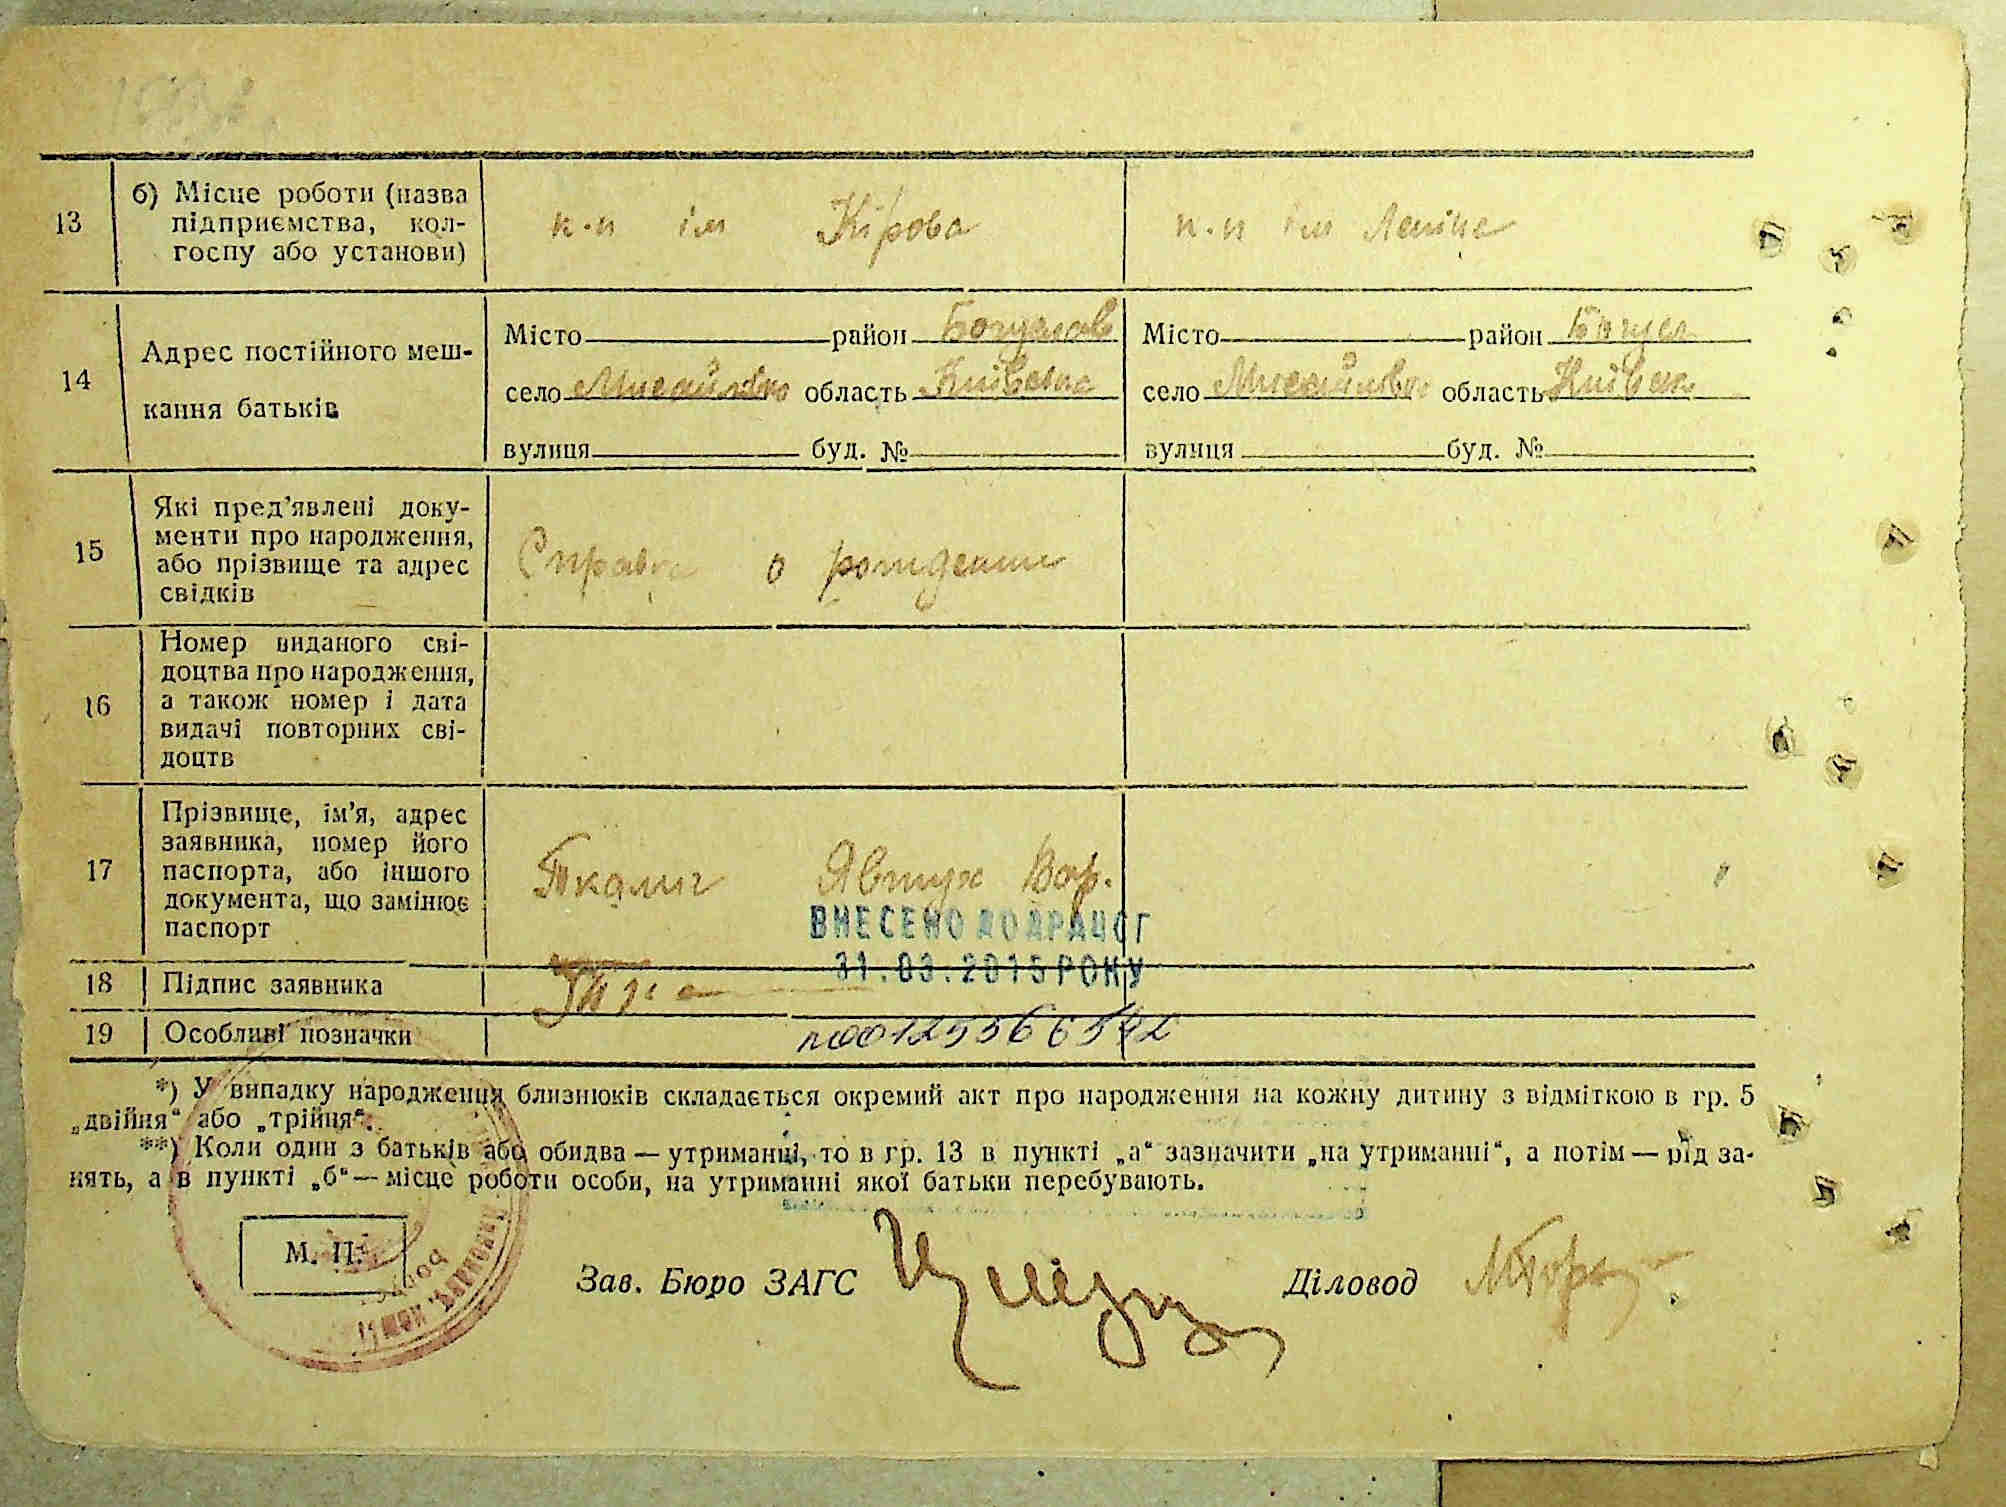 13
б) Місце роботи (назва
підприємства, кол-
госпу або установи)
к.п ім Кірова
к.п ім Леніна
14
Адрес постійного меш-
кання батьків
Місто район Богуслав
село область Київська
вулиця буд. №
Місто район Богусл
село область Київськ
вулиця буд. №
15
Які пред'явлені доку-
менти про народження,
або прізвище та адрес
свідків
Справка о рождении
16
Номер виданого сві-
доцтва про народження,
а також номер і дата
видачі повторних сві-
доцтв
17
Прізвище, ім'я, адрес
заявника, номер його
паспорта, або іншого
документа, що замінює
паспорт
Ткалич Явтух Вар.
ВНЕСЕНО ДО ДРАЦСГ
31.03.2015 РОКУ
18
Підпис заявника
19
Особливі позначки
*) У випадку народження близнюків складається окремий акт про народження на кожну дитину з відміткою в гр. 5
„двійня“ або „трійня“.
**) Коли один з батьків або обидва — утриманці, то в гр. 13 в пункті „а“ зазначити „на утриманні“, а потім — рід за-
нять, а в пункті „б“ — місце роботи особи, на утриманні якої батьки перебувають.
М. П.
Зав. Бюро ЗАГС
Діловод